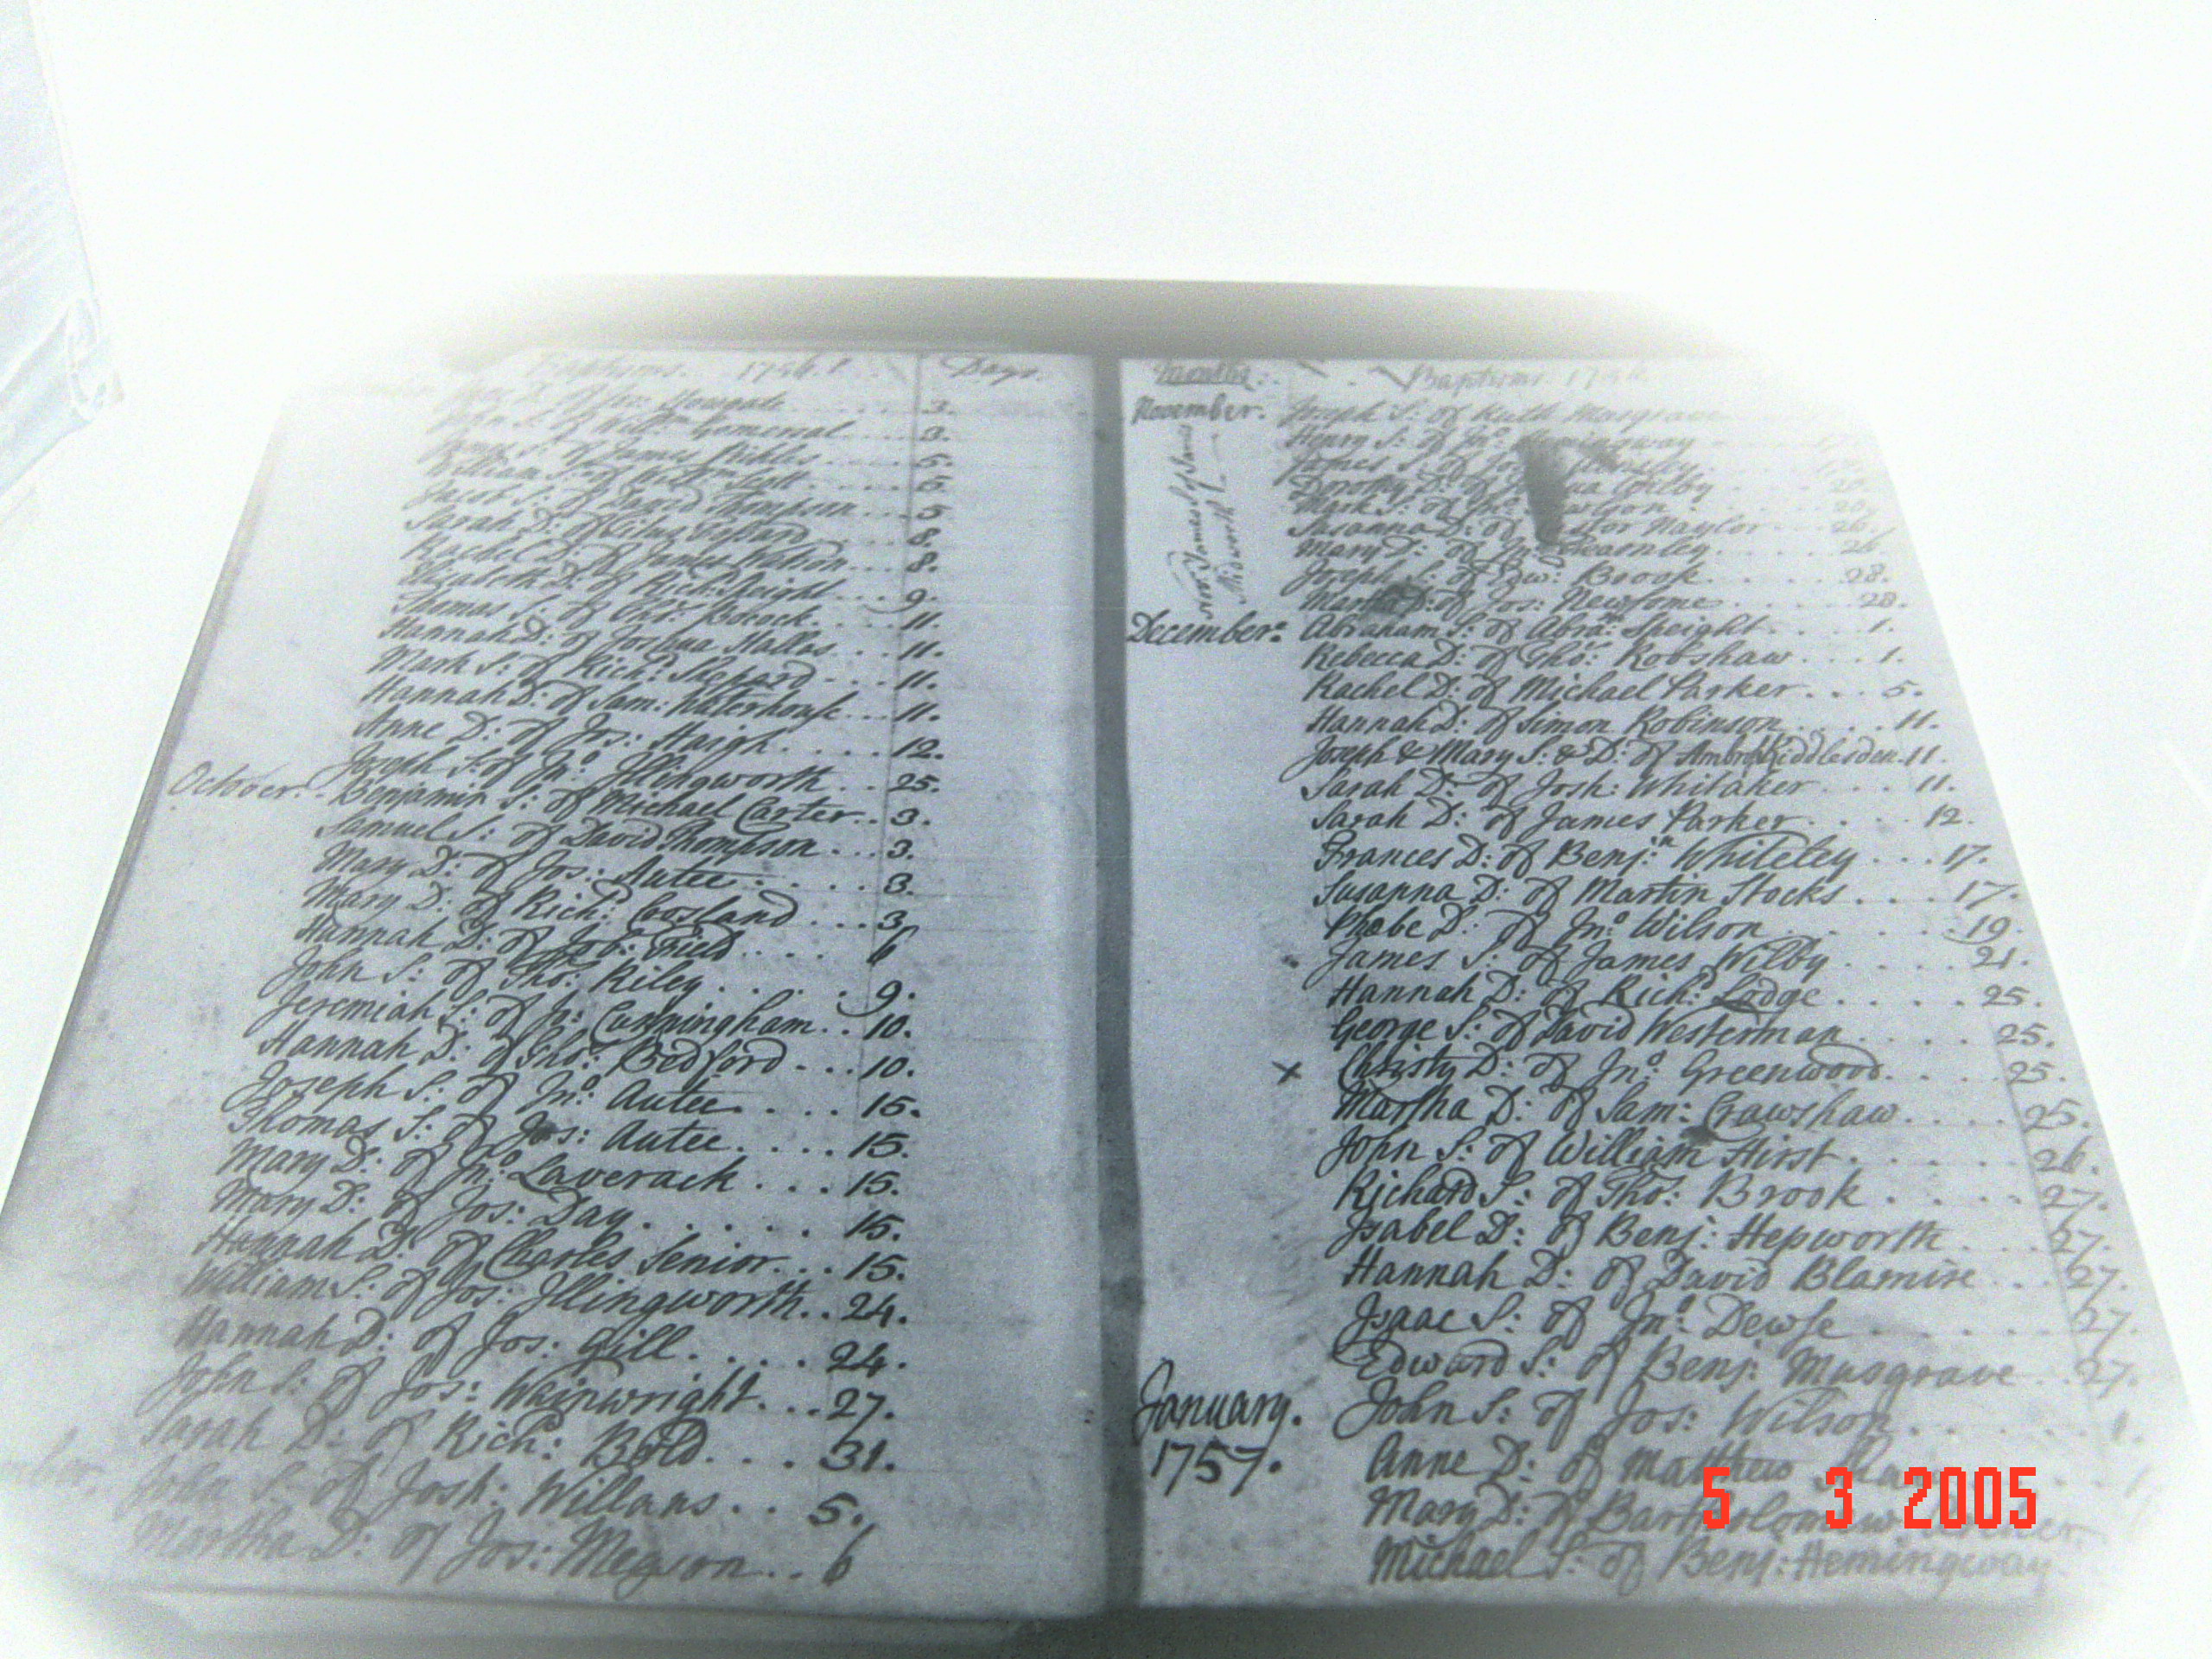 Baptisms. 1756. Days.
Howgate 3.
John S: of Will:m Gomersal 3.
James S: of James Kibbles 5.
William S: of Will:m Scott 5.
Jacob S: of David Thompson 5
Sarah D: of Titus 8.
Rachel D: of James Watson 8.
Elizabeth D: of Rich:d Speight 9.
Thomas S: of Tho:s Bocock 11.
Hannah D: of Joshua Hallas 11.
Mark S: of Rich:d Shepard 11.
Hannah D: of Sam: Waterhouse 11.
Anne D: of Jos: Haigh 12.
Joseph S: of Jn:o Illingworth 25.
October. Benjamin S: of Michael Carter 3.
Samuel S: of David Thompson 3.
Mary D: of Jos: Autee 3.
Mary D: of Rich:d Cosland 3
Hannah D: of Job: Field 6
John S: of Tho:s Riley 9.
Jeremiah S: of Jn:o Cunningham 10.
Hannah D: of Tho:s Bedford 10.
Joseph S: of Jn:o Autee 15.
Thomas S: of Jos: Autee 15.
Mary D: of Jn:o Laverack 15.
Mary D: of Jos: Day 15.
Hannah D: of Charles Senior 15.
William S: of Jos: Illingworth 24.
Hannah D: of Jos: Gill 24.
John S: of Jos: Wainwright 27.
Sarah D: of Rich:d Bold 31.
John S: of Josh: Willans 5.
Martha D: of Jos: Megson 6
Months. Baptisms 1756
November. Joseph S: of Ruth Musgrave
Henry S: of Jn:o Hemingway
James S: of
Dorothy D: of Wilby
Mark S: of Jn:o
Susanna D: of Naylor 26.
Mary D: of Jn:o Fearnley 26
Joseph S: of Edw:d Brook 28.
Martha D: of Jos: Newsome 28.
December. Abraham S: of Abra:m Speight 1.
Rebecca D: of Tho:s Robshaw 1.
Rachel D: of Michael Parker 5.
Hannah D: of Simon Robinson 11.
Joseph & Mary S: & D: of Ambro: Kiddlesden 11.
Sarah D: of Josh: Whitaker 11.
Sarah D: of James Parker 12.
Frances D: of Benj:n Whiteley 17.
Susanna D: of Martin Stocks 17.
Phebe D: of Jn:o Wilson 19.
James S: of James Wilby 21.
Hannah D: of Rich:d Lodge 25.
George S: of David Westerman 25.
x Christy D: of Jn:o Greenwood 25.
Martha D: of Sam: Crawshaw 25.
John S: of William Hirst 26.
Richard S: of Tho:s Brook 27.
Isabel D: of Benj: Hepworth 27.
Hannah D: of David Blamire 27.
Isaac S: of Jn:o Dewse 27.
Edward S: of Benj: Musgrave 27.
January. John S: of Jos: Wilson 1.
1757. Anne D: of Matthew
Mary D: of Bartholomew
Michael S: of Benj: Hemingway
5 3 2005